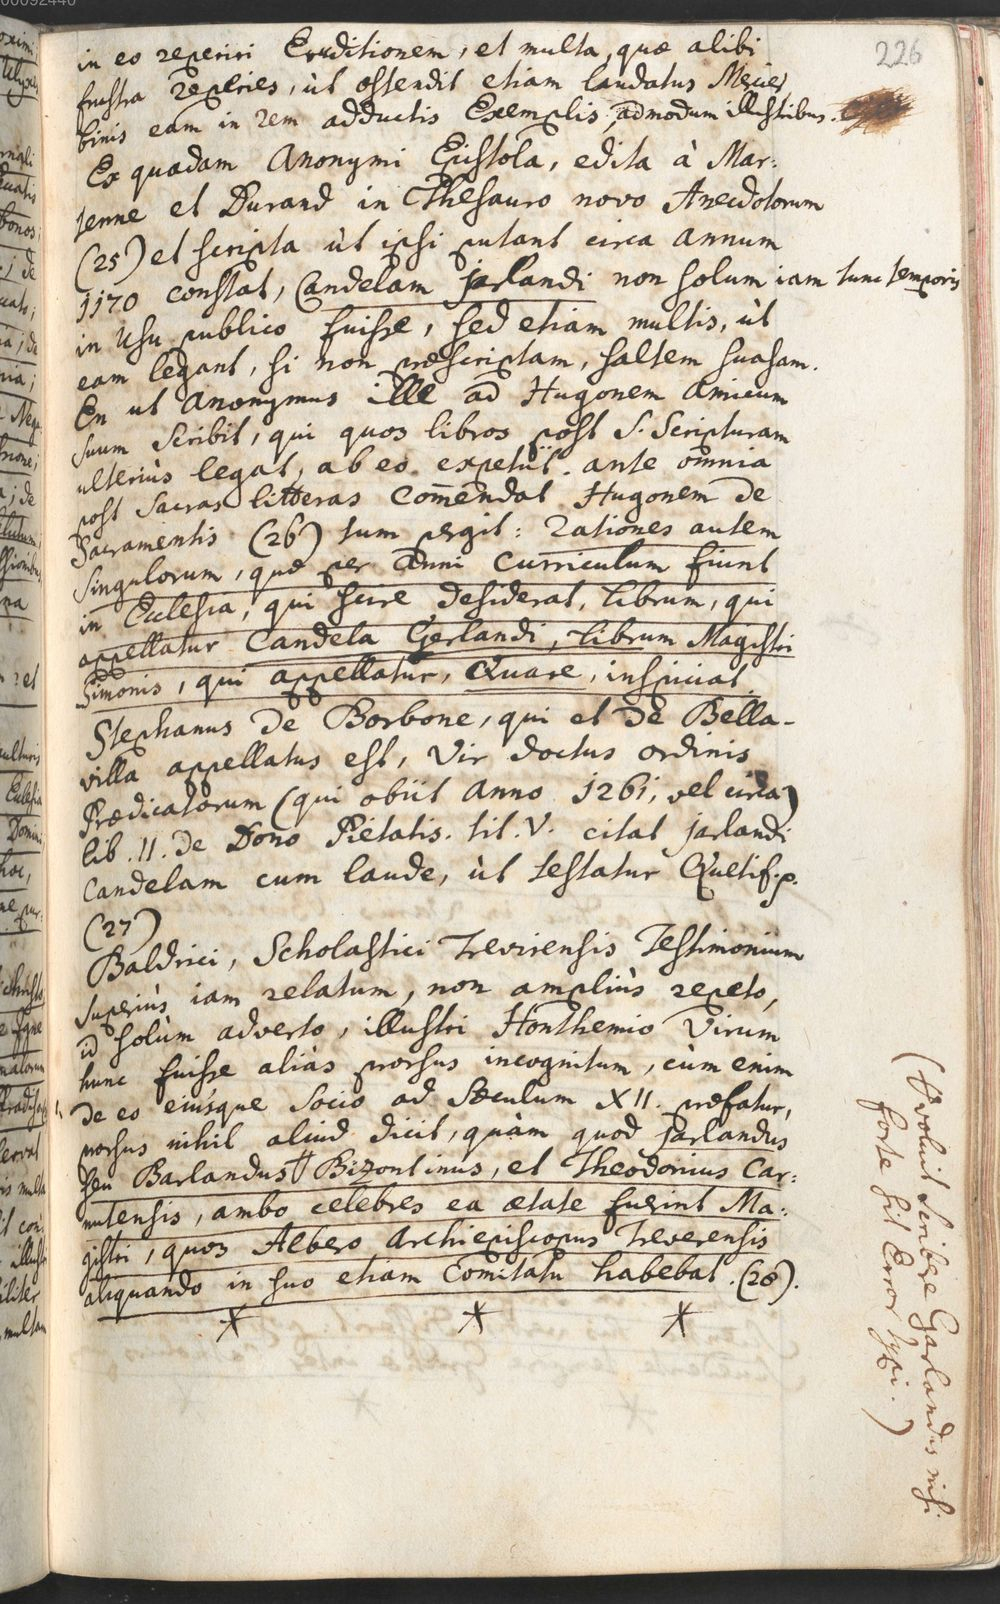 226
in eo reperiri Eruditionem, et multa, quæ alibi
frustra reperies, ùt ostendit etiam laudatus Mercier
binis eam in rem adductis Exemplis, admodum illustribus.
Ex quadam Anonymi Epistola, edita à Mar:
tenne et Durand in Thesauro novo Anecdotorum
(25) et scripta ùt ipsi putant circa annum
1170 constat, Candelam Jarlandi non solum iam tunc temporis
in usu publico fuisse, sed etiam multis, ùt
eam legant, si non præscriptam, saltem suasam.
En ut Anonymus ille ad Hugonem Amicum
suum scribit, qui quos libros post S. Scripturam
ulteriùs legat, ab eo expetiit. ante omnia
post Sacras litteras com̄endat Hugonem de
Sacramentis (26) tum pergit: Rationes autem
singulorum, quæ per Anni curriculum fiunt
in Ecclesia, qui scire desiderat, librum, qui
appellatur Candela Gerlandi, librum Magistri
Simonis, qui appellatur, Quare, inspiciat
Stephanus de Borbone, qui et de Bella-
villa appellatus est, Vir doctus ordinis
Prædicatorum (qui obiit Anno 1261, vel circa)
lib. II. de Dono Pietatis. tit. V. citat Jarlandi
Candelam cum laude, ùt testatur Quetif. p.
(27)
Baldrici, Scholastici Trevirensis Testimonium
superiùs iam relatum, non ampliùs repeto,
id solùm adverto, illustri Honthemio Virum
hunc fuisse aliàs prorsus incognitum, cùm enim
de eo eiùsque Socio ad Sæculum XII. præfatur,
prorsus nihil aliud dicit, quàm quod Jarlandus
seu Barlandus †† Bizontinus, et Theodoricus Car:
nutensis, ambo celebres ea ætate fuerint Ma:
gistri, quos Albero Archiepiscopus Treverensis
aliquando in suo etiam Comitatu habebat. (28).
* * *
(†† voluit scribere Garlandus nisi
forte sit Error typi.)